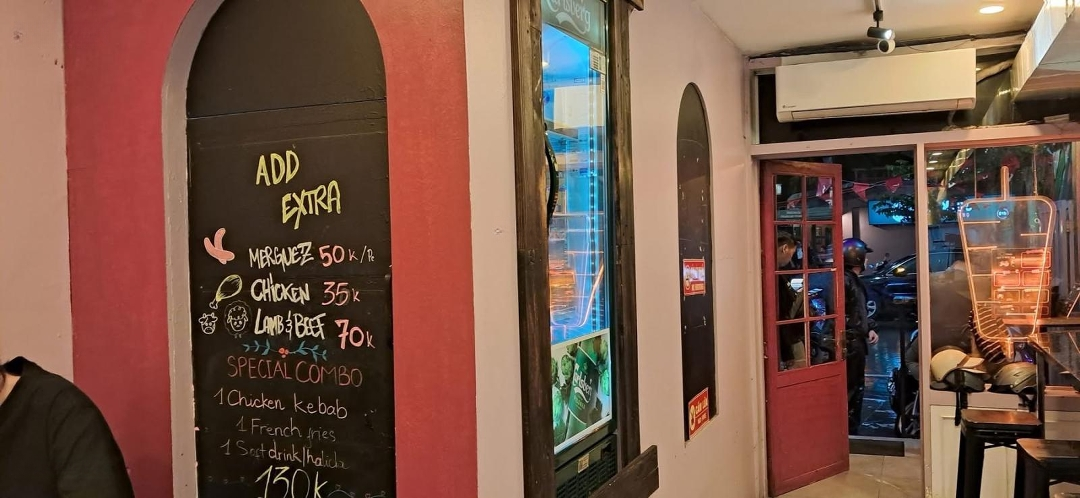 ADD
EXTRA
MERGUEZ 50K/P
CHICKEN 35K
LAMB & BEEF 70K
SPECIAL COMBO
1 Chicken kebab
1 French fries
1 Soft drink/halida
130K
Carlsberg
Carlsberg